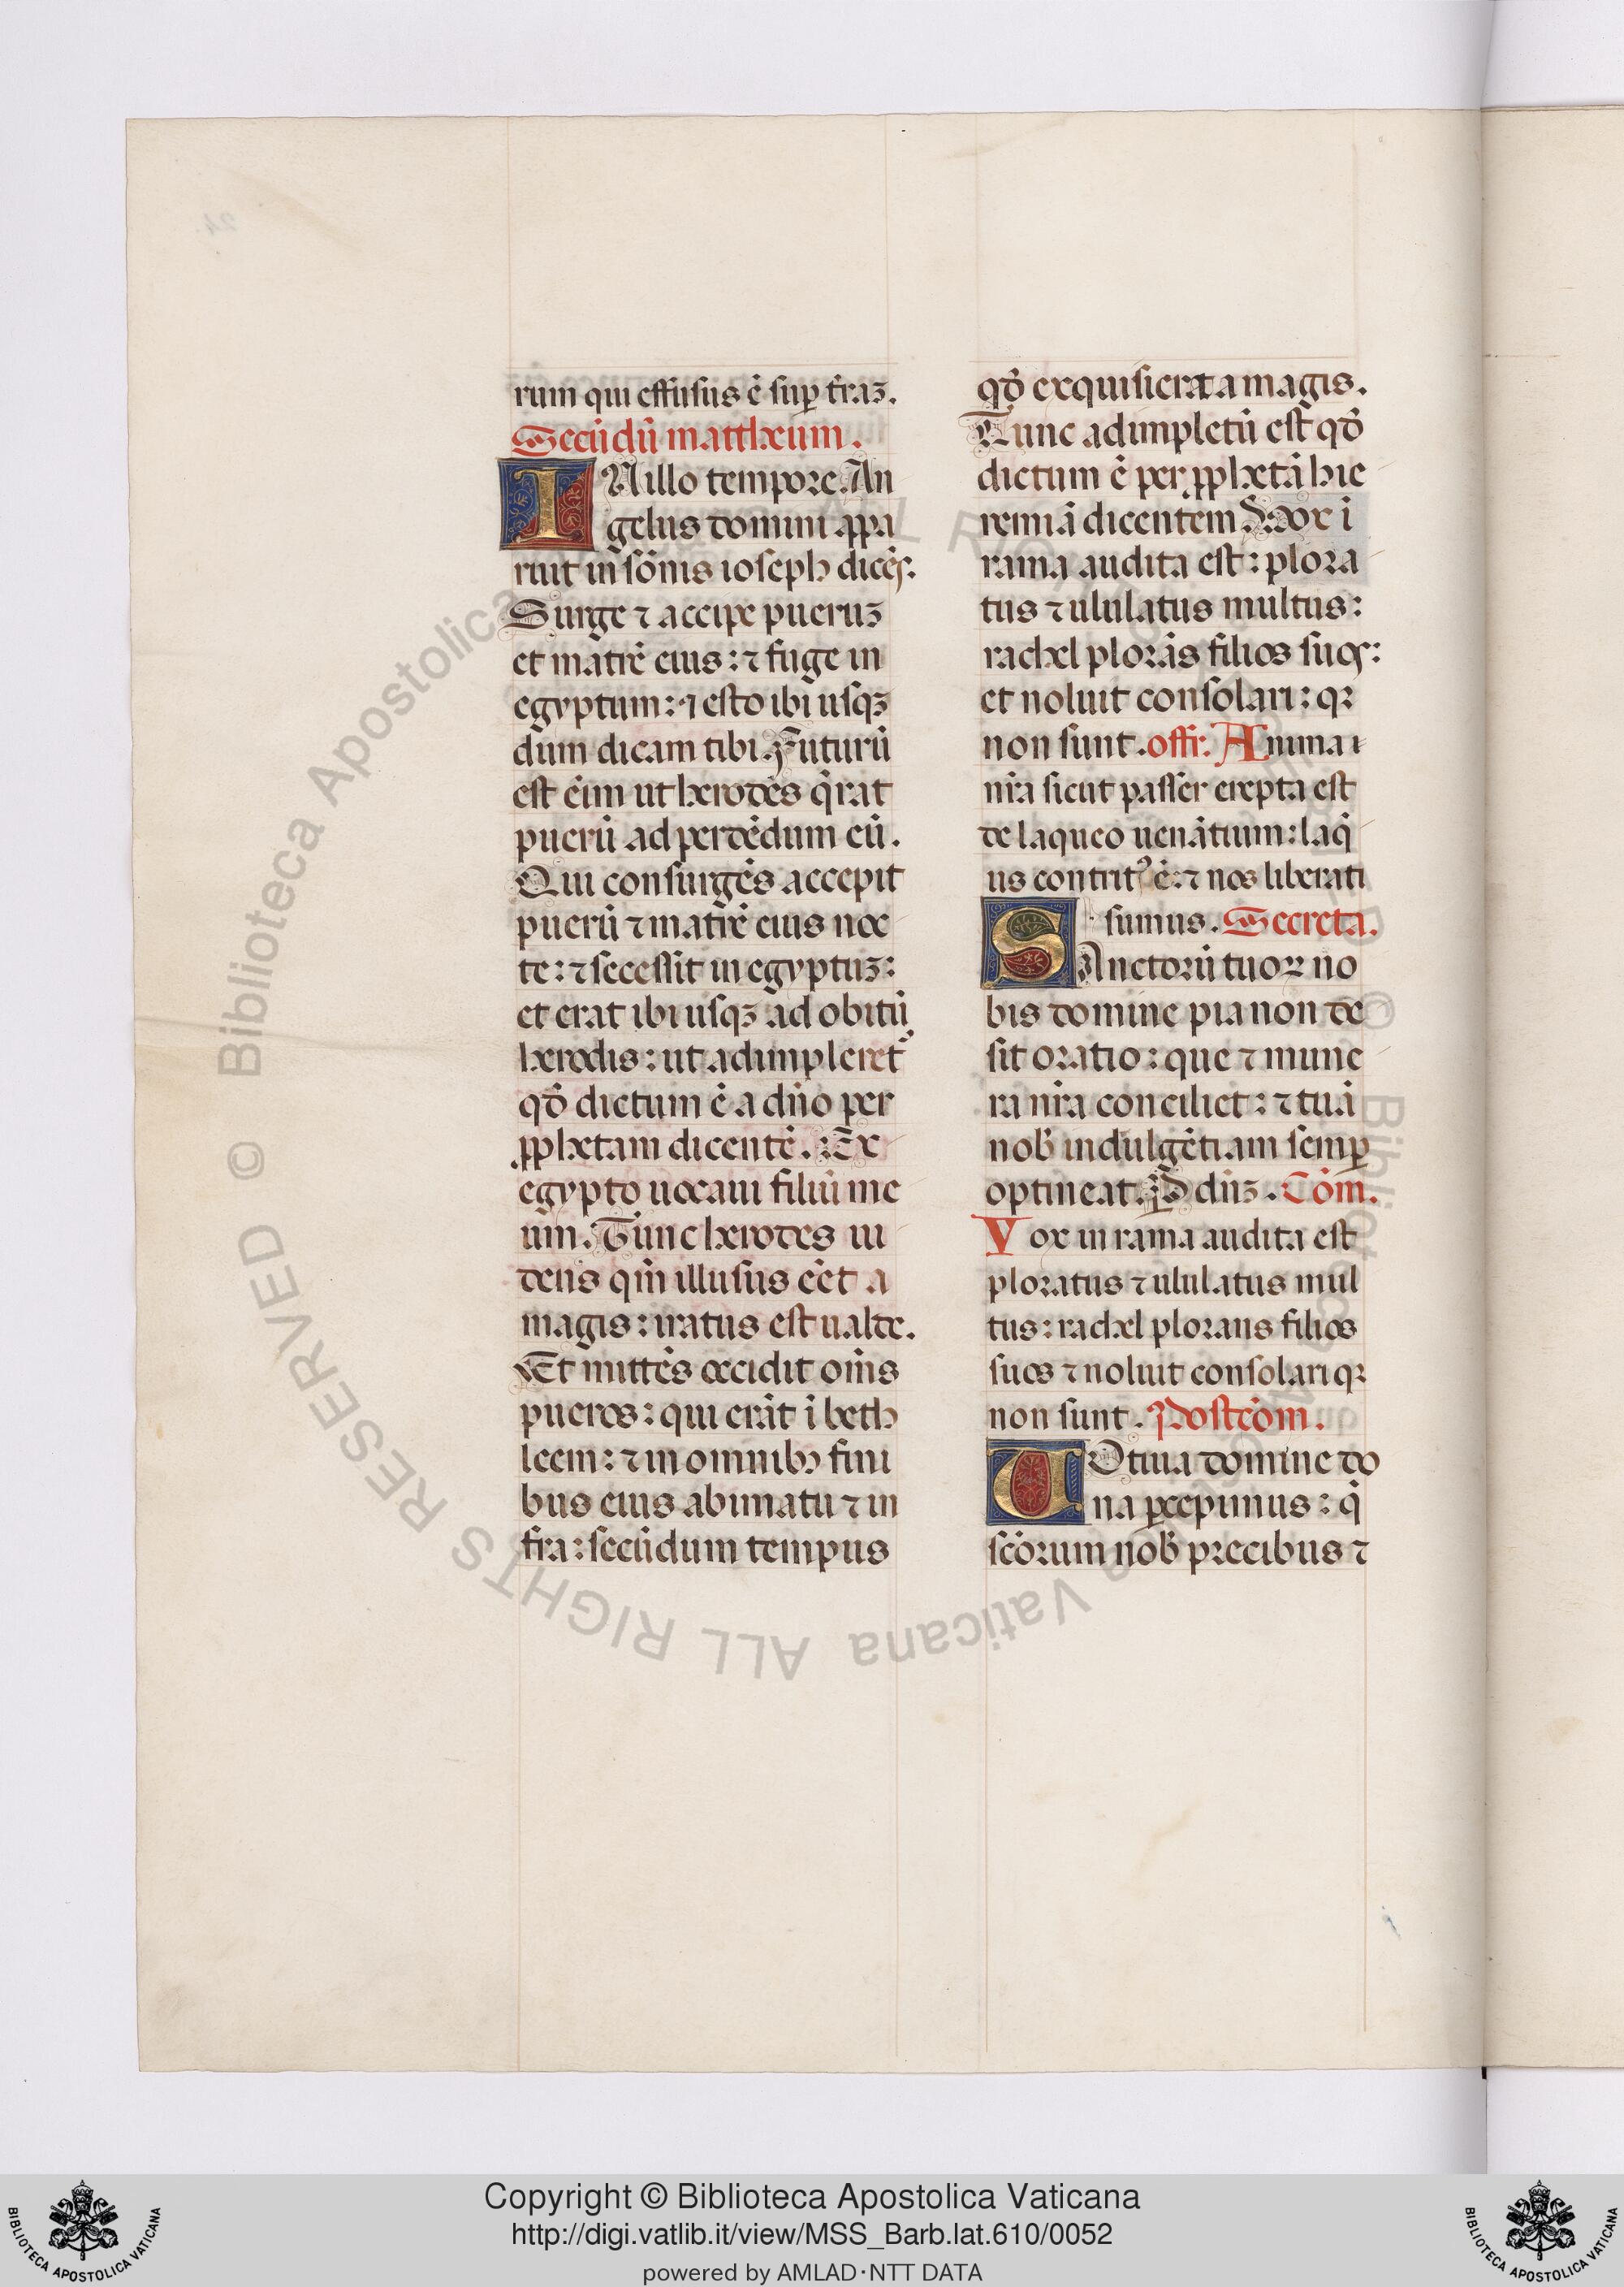 rum qui effusus ē sup̱ t̄raꝫ.
Secūdū mattheum.
INillo tempore. An
gelus domini appa
ruit in sōnis ioseph dicēs.
Surge ⁊ accipe pueruꝫ
et matrē eius: ⁊ fuge in
egyptum: ⁊ esto ibi usqꝫ
dum dicam tibi. Futurū
est ēim ut herodes q̄rat
puerū ad perdēdum eū.
Qui consurgēs accepit
puerū ⁊ matrē eius noc
te: ⁊ secessit in egyptuꝫ:
et erat ibi usqꝫ ad obitū
herodis: ut adimpleret᷑
qđ dictum ē a dn̄o per
ꝓphetam dicentē. Ex
egypto uocaui filiū me
um. Tunc herodes ui
dens qm̄ illusus eēt a
magis: iratus est ualde.
Et mittēs occidit om̄s
pueros: qui erāt ī beth
leem: ⁊ in omnibꝫ fini
bus eius a bimatu ⁊ in
fra: secūdum tempus
qđ exquisierat a magis.
Tunc adimpletū est qđ
dictum ē per ꝓphetā hie
remiā dicentem. Vox ī
rama audita est: plora
tus ⁊ ululatus multus:
rachel plorās filios suos:
et noluit consolari: qꝛ
non sunt. offr. Anima
nr̄a sicut passer erepta est
de laqueo uenātium: laq̄
us contritꝰ ē: ⁊ nos liberati
sumus. Secreta.
SAnctorū tuoꝝ no
bis domine pia non de
sit oratio: que ⁊ mune
ra nr̄a conciliet: ⁊ tuā
nob̄ indulgētiam semp̱
optineat. P̱ dn̄ꝫ. Cōm.
Vox in rama audita est
ploratus ⁊ ululatus mul
tus: rachel plorans filios
suos ⁊ noluit consolari qꝛ
non sunt. Postcōm.
UOtiua domine do
na p̱cepimus: q̄
scōrum nob̄ precibus ⁊
© Biblioteca Apostolica Vaticana ALL RIGHTS RESERVED
Copyright © Biblioteca Apostolica Vaticana
http://digi.vatlib.it/view/MSS_Barb.lat.610/0052
powered by AMLAD·NTT DATA
BIBLIOTECA APOSTOLICA VATICANA
BIBLIOTECA APOSTOLICA VATICANA